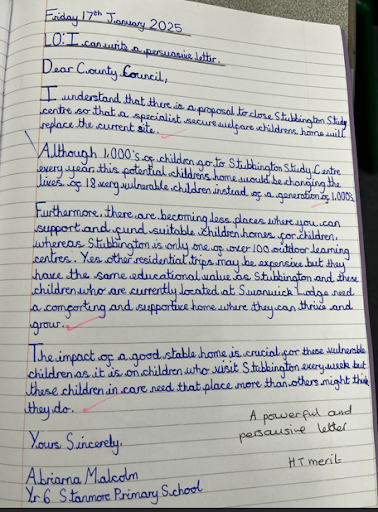 Friday 17th January 2025
LO: I can write a persuasive letter.
Dear County Council,
I understand that there is a proposal to close Stubbington Study
centre so that a specialist secure welfare childrens home will
replace the current site.
Although 1,000's of children go to Stubbington Study Centre
every year, this potential childrens home would be changing the
lives of 18 very vulnerable children instead of a generation of 1,000s.
Furthermore, there are becoming less places where you can
support and fund suitable children homes for children,
whereas Stubbington is only one of over 100 outdoor learning
centres. Yes other residential trips may be expensive but they
have the same educational value as Stubbington and these
children who are currently located at Swanwick Lodge need
a comforting and supportive home where they can thrive and
grow.
The impact of a good stable home is crucial for these vulnerable
children as it is on children who visit Stubbington every week but
these children in care need that place more than others might think
they do.
Yours Sincerely,
A powerful and
persausive letter
HT merit
Abriana Malcolm
Yr 6 Stanmore Primary School